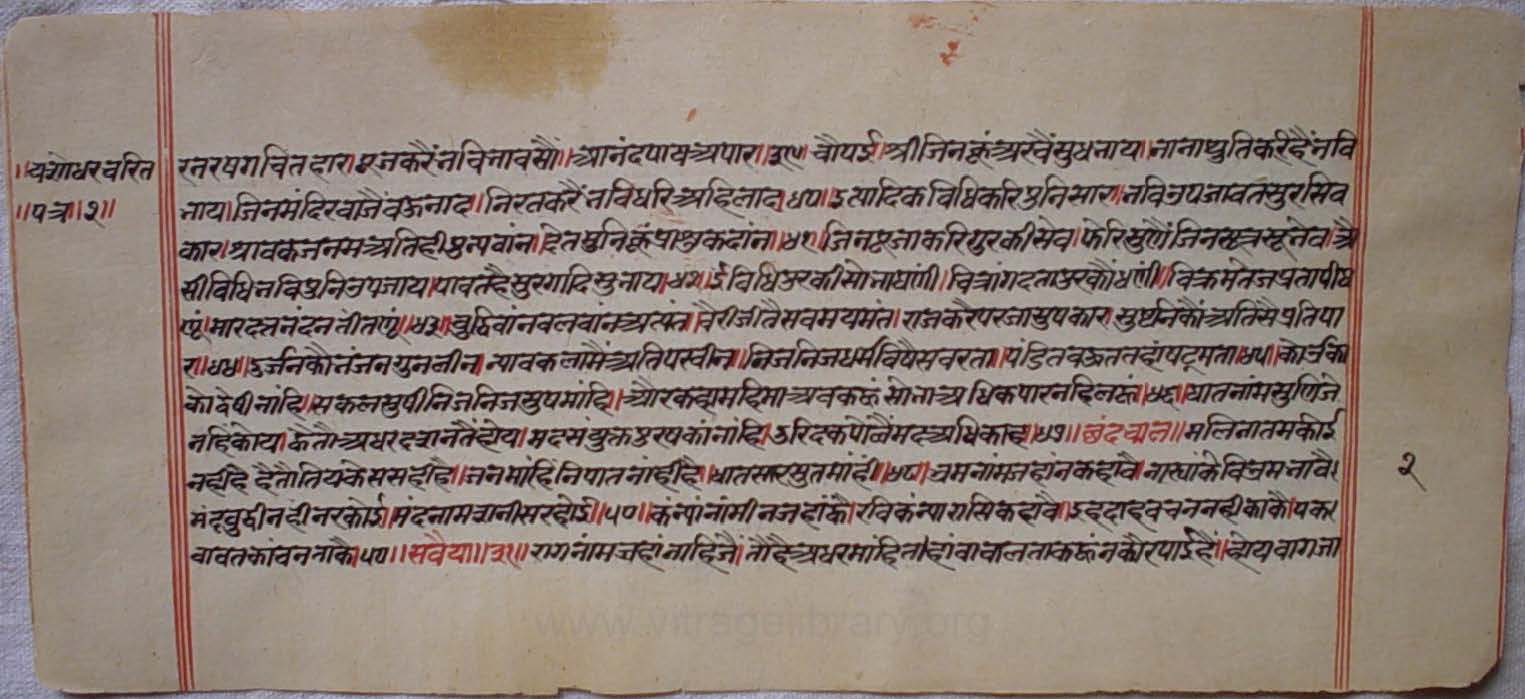 ॥यशोधरचरित
॥पत्र॥२॥
रतरपगचितहार॥पूजकरैंनविनावसौं॥आनंदपायअपार॥३९॥चौपई॥श्रीजिनकूंअरचैंसुधनाय॥नानाथुतिकरिहैंनवि
नाय॥जिनमंदिरवाजैंवऊनाद॥निरतकरैंनविधरिअहिलाद॥४०॥इत्यादिकविधिकरिपुनिसार॥नविउपजावतसुरसिव
कार॥श्रावकजनमअतिहीपुन्यवांन॥देतमुनिकूंप्राशुकदांन॥४१॥जिनपूजाकरिगुरकीसेव॥फेरिसुणैंजिनसूत्रसूनेव॥अै
सीविधिनविपुनिउपजाय॥पावतहैसुरगादिसुनाय॥४२॥ईविधिपुरकीसोनाघणी॥चित्रांगदतापुरकौंधणी॥विक्रमतेजप्रतापीघ
णूं॥मारदत्तनंदनतीतणूं॥४३॥बुद्धिवांनवलवांनअत्यंत॥वैरीजीतैसवमयमंत॥राजकरैपरजासुपकार॥सुष्टनिकौंअतिसैप्रतिपा
र॥४४॥दुर्जनकौनंजनगुनलीन॥न्यावकलामैंअतिपरवीन॥निजनिजधर्मविषैसवरता॥पंडितवऊततहांषटूमता॥४५॥कोऊको
कोदेषीनांहि॥सकलसुषीनिजनिजसुषमांहि॥औरकहामहिमाअवकहूं॥सोनाअधिकपारनहिलहूं॥४६॥घातनांमसुणिजे
नहिकोय॥कैतौअधरदवानतैंहोय॥मदसंयुक्तपुरषकोनांहि॥दुरिदकपोलैंमदअधिकाह॥४७॥॥छंदचाल॥मलिनातमकोई
नहीहै॥दैतौतियकेससहीहै॥जनमांहिंनिपातनांहीहै॥धातसारसुतमांही॥४८॥भ्रमनांमजहांनकहावै॥नास्यांकेविभ्रमनावै।
मंदबुद्धीनहीनरकोई॥मंदनामवानीसरहोई॥५०॥कंन्यांनांमीनजहांकै॥रविकंन्यारासिकहावै॥इहदाहवचननहीकाकै॥पकर
वावतकांवननाकै॥५१॥॥सवैया॥३१॥रागनांमजहांनाहिजैं॥तौहैअधरमांहिनाहांवावालताकहूंनकौरपाईहैं॥होयवागजा
२
www.vitragelibrary.org